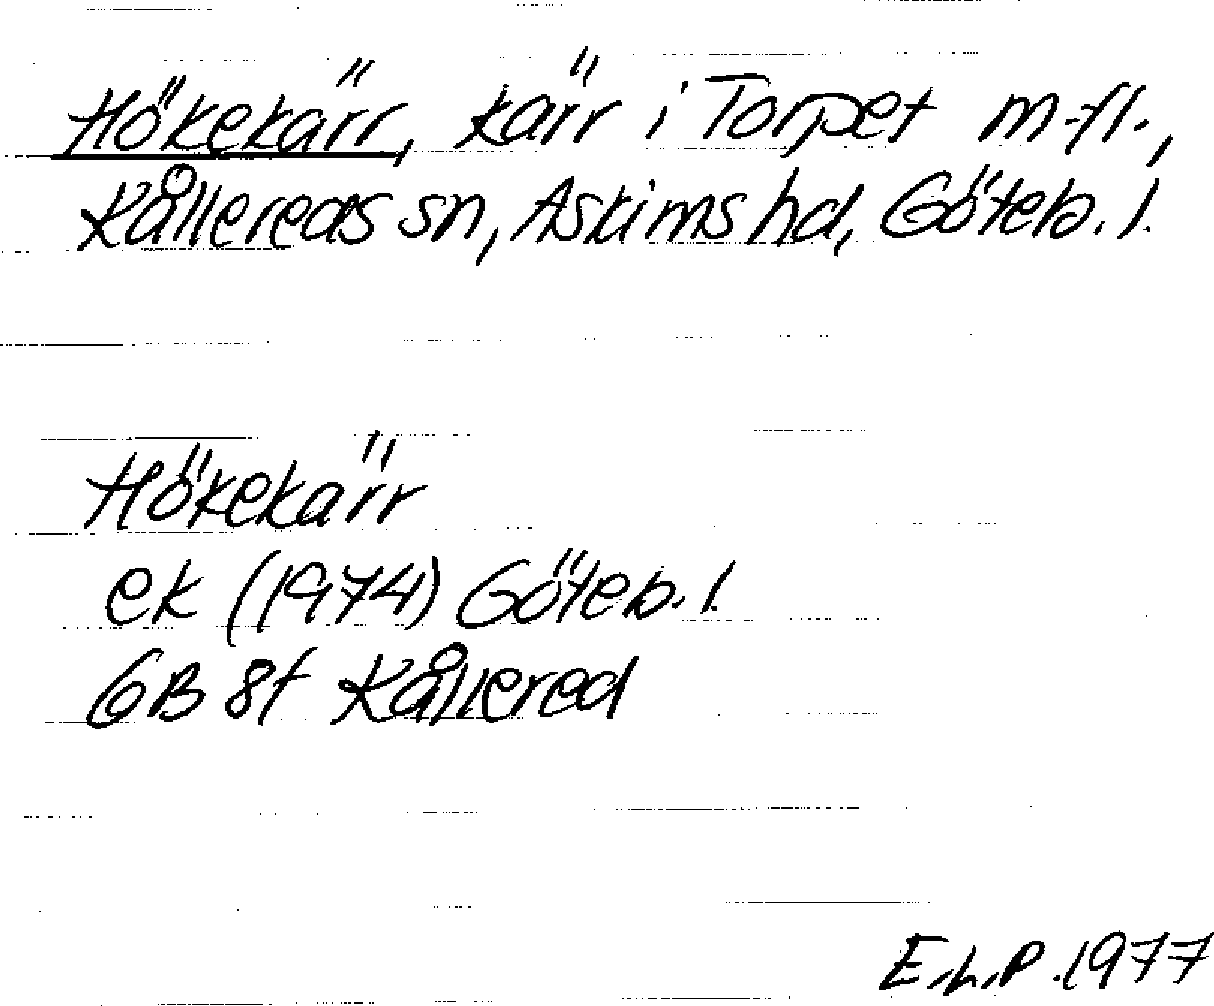 Hökekärr, kärr i Torpet m.fl.,
Kållereds sn, Askims hd, Göteb. l.
Hökekärr
ek (1974) Göteb. l.
GB 8f Kållered
E.L.P. 1977